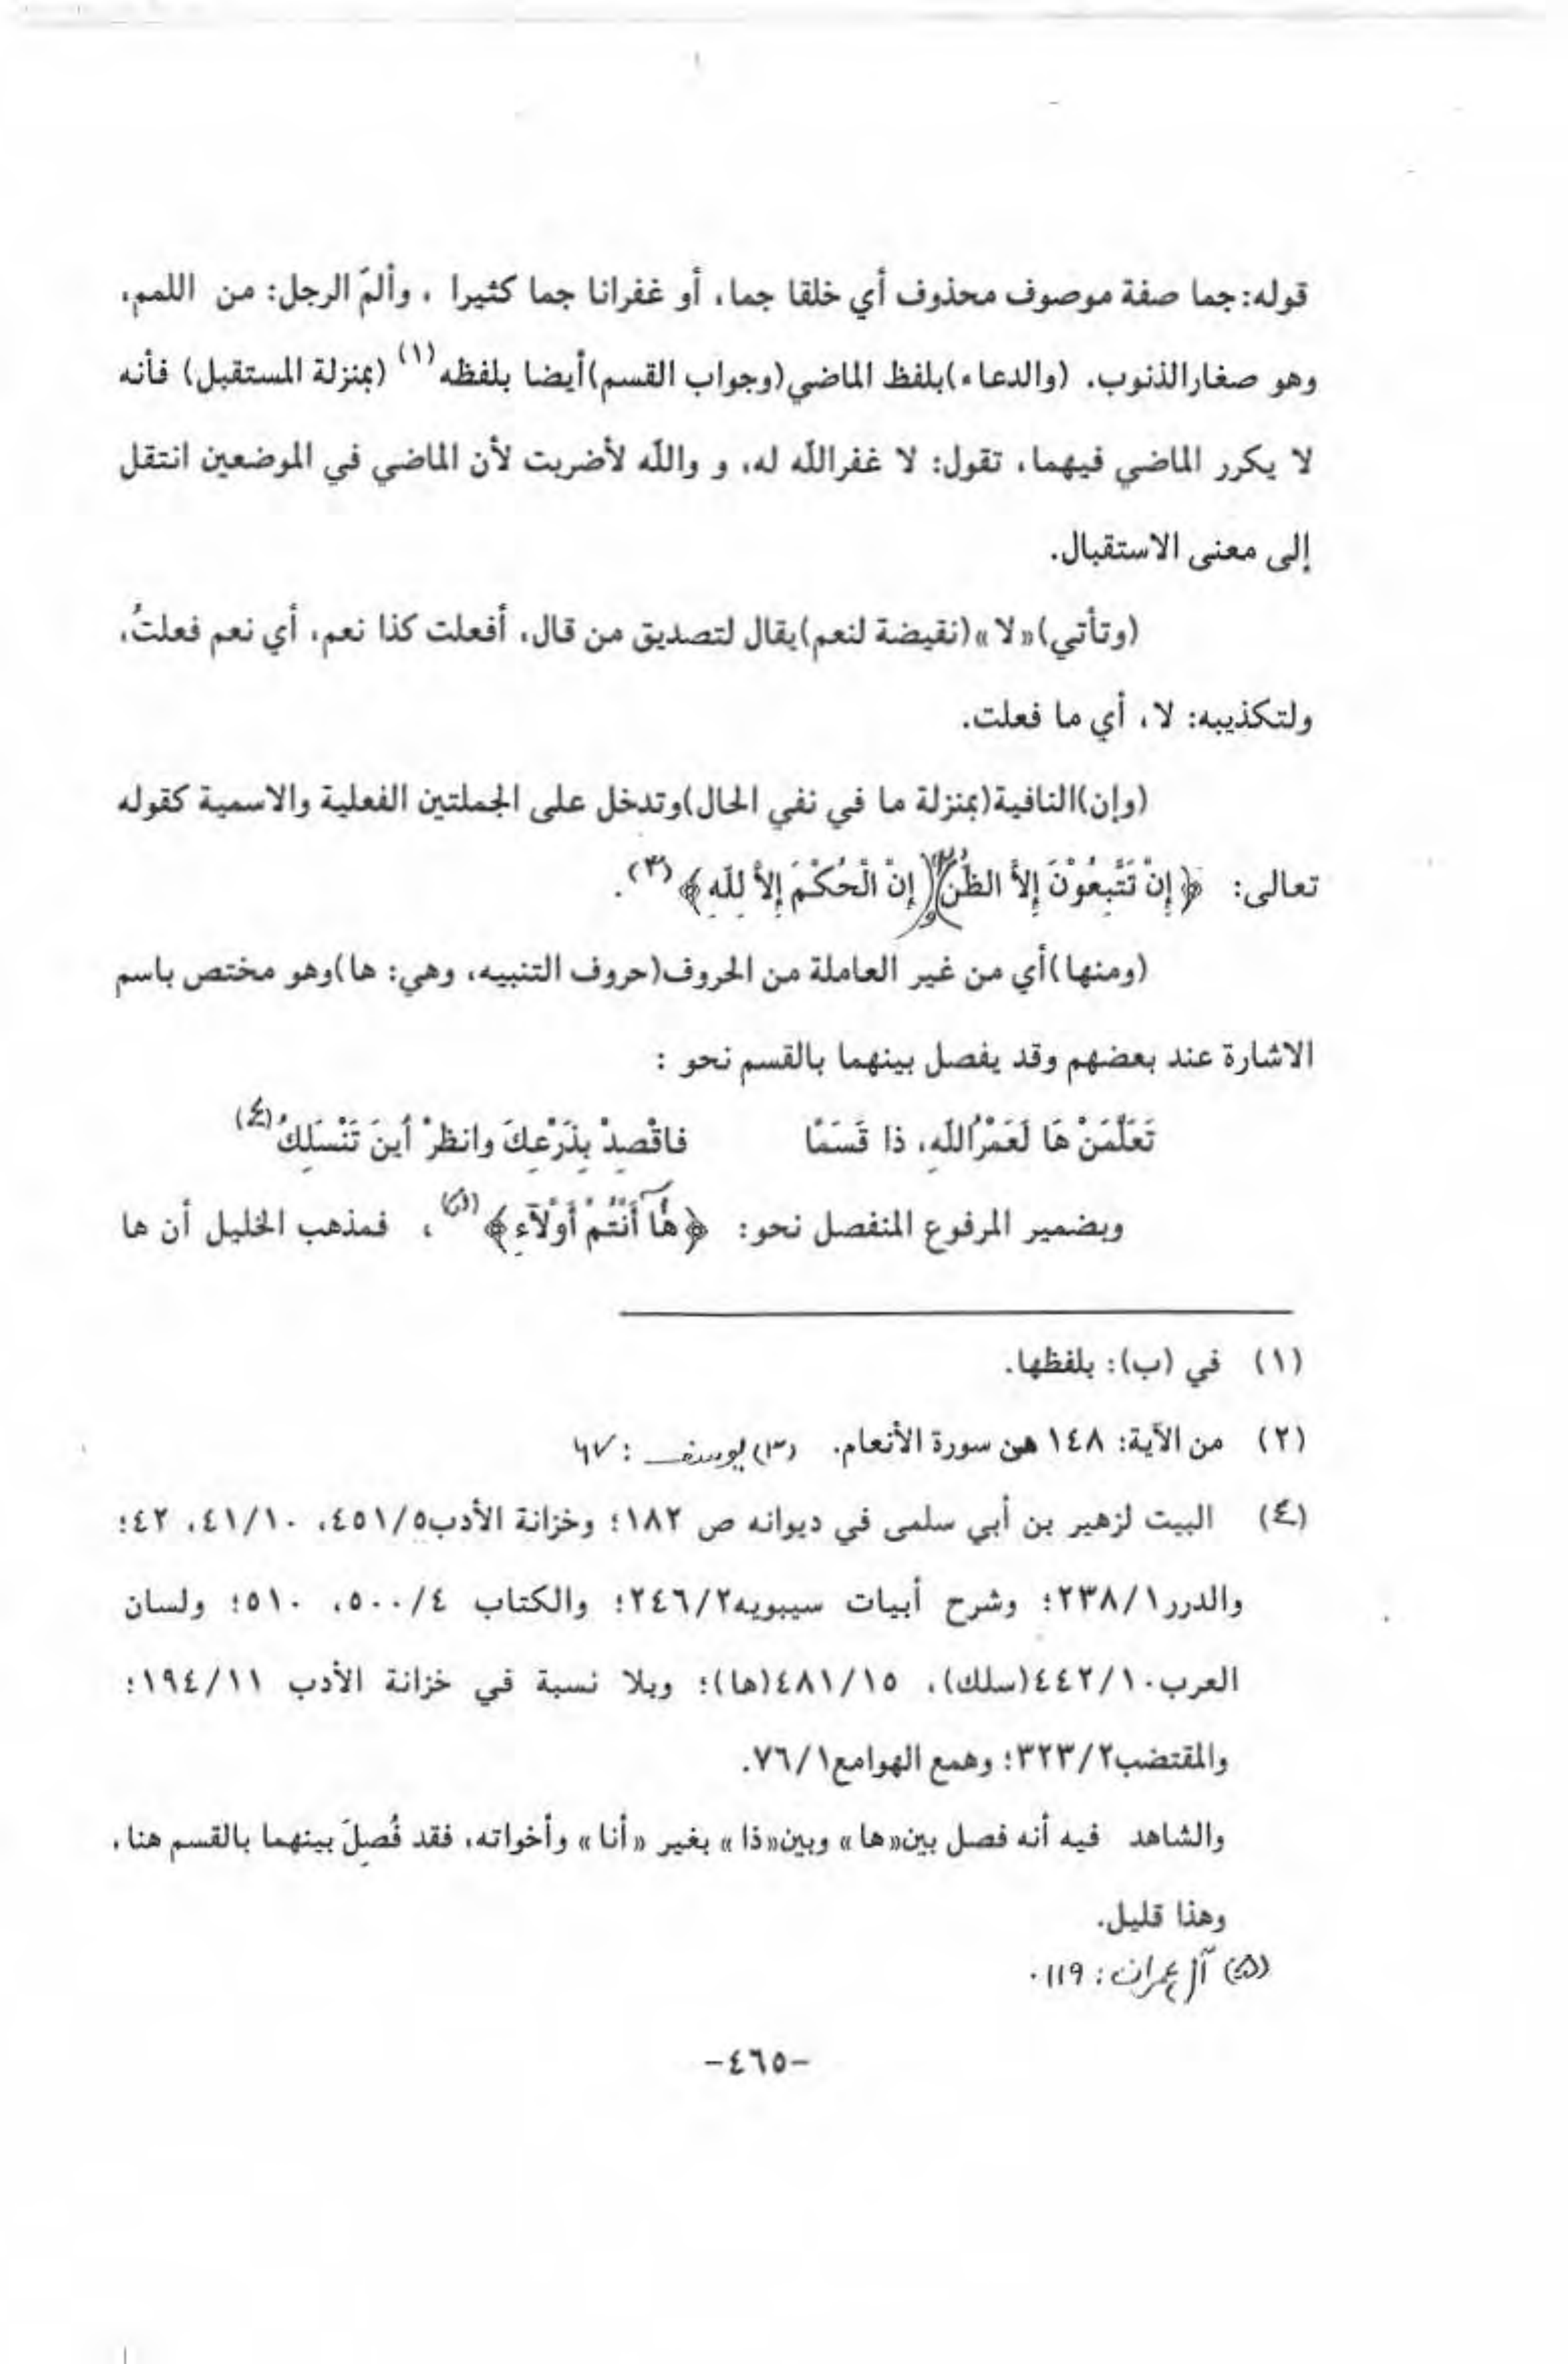 قوله: جما صفة موصوف محذوف أي خلقا جما، أو غفرانا جما كثيرا ، وألمّ الرجل: من اللمم،
وهو صغارالذنوب. (والدعاء)بلفظ الماضي(وجواب القسم)أيضا بلفظه(١) (بمنزلة المستقبل) فأنه
لا يكرر الماضي فيهما، تقول: لا غفرالله له، و والله لأضربت لأن الماضي في الموضعين انتقل
إلى معنى الاستقبال.
(وتأتي)«لا»(نقيضة لنعم)يقال لتصديق من قال، أفعلت كذا نعم، أي نعم فعلتُ،
ولتكذيبه: لا، أي ما فعلت.
(وإن)النافية(بمنزلة ما في نفي الحال)وتدخل على الجملتين الفعلية والاسمية كقوله
تعالى: ﴿إِنْ تَتَّبِعُوْنَ إِلاَّ الظَّنَّ﴾(٢) و﴿إِنْ الْحُكْمَ إِلاَّ لِلّهِ﴾(٣).
(ومنها)أي من غير العاملة من الحروف(حروف التنبيه، وهي: ها)وهو مختص باسم
الاشارة عند بعضهم وقد يفصل بينهما بالقسم نحو :
تَعَلَّمَنْ هَا لَعَمْرُاللَهِ، ذا قَسَمًا فاقْصِدْ بِذَرْعِكَ وانظرْ أينَ تَنْسَلِكُ(٤)
وبضمير المرفوع المنفصل نحو: ﴿هَٰٓا أَنْتُمْ أَوْلَآءِ﴾(٥) ، فمذهب الخليل أن ها
(١) في (ب): بلفظها.
(٢) من الآية: ١٤٨ من سورة الأنعام. (٣) يوسف : ٦٧
(٤) البيت لزهير بن أبي سلمى في ديوانه ص ١٨٢؛ وخزانة الأدب٤٥١/٥، ٤١/١٠، ٤٢؛
والدرر٢٣٨/١؛ وشرح أبيات سيبويه٢٤٦/٢؛ والكتاب ٥٠٠/٤، ٥١٠؛ ولسان
العرب٤٤٢/١٠(سلك)، ٤٨١/١٥(ها)؛ وبلا نسبة في خزانة الأدب ١٩٤/١١؛
والمقتضب٣٢٣/٢؛ وهمع الهوامع٧٦/١.
والشاهد فيه أنه فصل بين«ها» وبين«ذا» بغير «أنا» وأخواته، فقد فُصِلَ بينهما بالقسم هنا،
وهذا قليل.
(٥) آل عمران: ١١٩.
-٤٦٥-